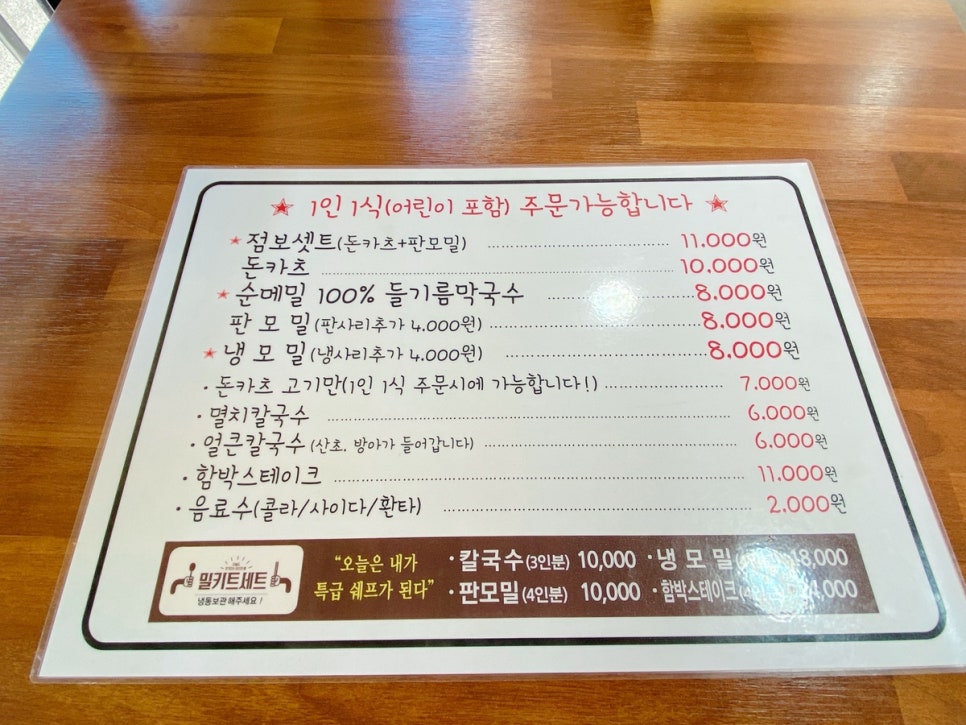 1인 1식(어린이 포함) 주문가능합니다
점보셋트(돈카츠+판모밀) 11.000원
돈카츠 10.000원
순메밀 100% 들기름막국수 8.000원
판 모 밀(판사리추가 4.000원) 8.000원
냉 모 밀(냉사리추가 4.000원) 8.000원
·돈카츠 고기만(1인 1식 주문시에 가능합니다!) 7.000원
·멸치칼국수 6.000원
·얼큰칼국수(산초, 방아가 들어갑니다) 6.000원
·함박스테이크 11.000원
·음료수(콜라/사이다/환타) 2.000원
밀키트세트
냉동보관 해주세요!
“오늘은 내가
특급 쉐프가 된다”
·칼국수(3인분) 10,000 ·냉 모 밀
·판모밀(4인분) 10,000 ·함박스테이크